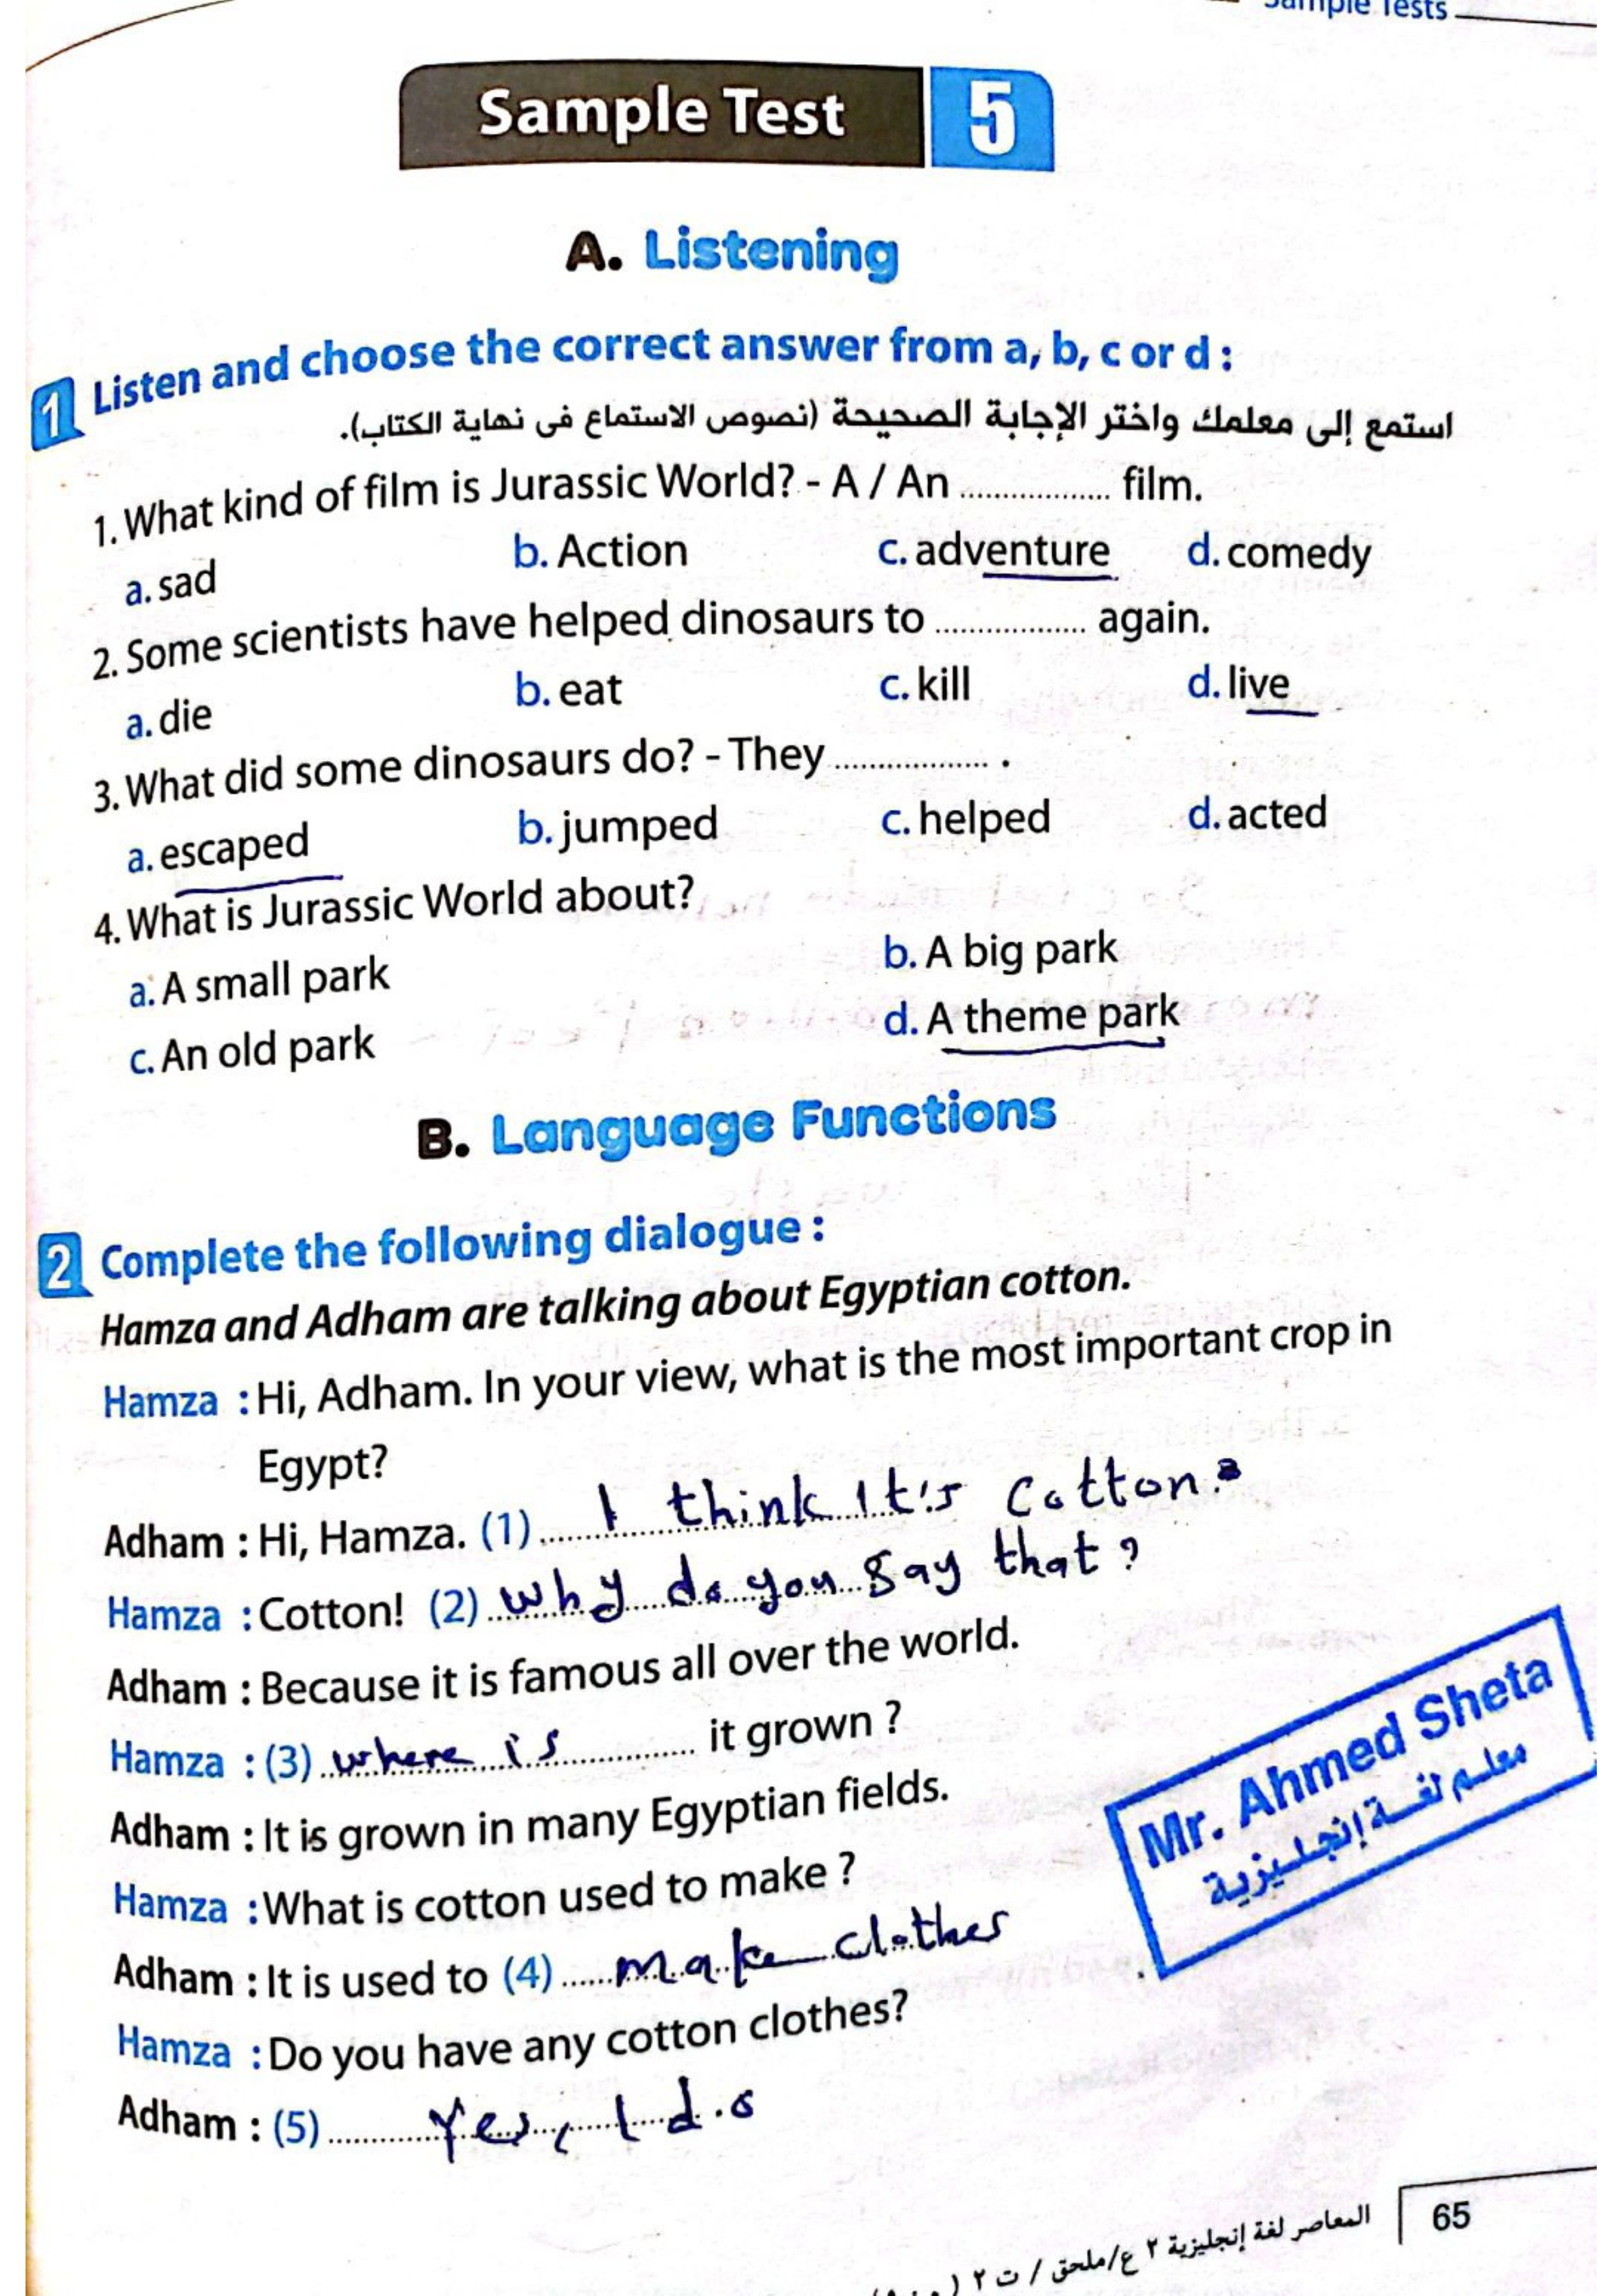 Sample Tests
Sample Test 5
A. Listening
1 Listen and choose the correct answer from a, b, c or d :
استمع إلى معلمك واختر الإجابة الصحيحة (نصوص الاستماع فى نهاية الكتاب).
1. What kind of film is Jurassic World? - A / An ................. film.
a. sad b. Action c. adventure d. comedy
2. Some scientists have helped dinosaurs to ................. again.
a. die b. eat c. kill d. live
3. What did some dinosaurs do? - They ................. .
a. escaped b. jumped c. helped d. acted
4. What is Jurassic World about?
a. A small park b. A big park
c. An old park d. A theme park
B. Language Functions
2 Complete the following dialogue :
Hamza and Adham are talking about Egyptian cotton.
Hamza : Hi, Adham. In your view, what is the most important crop in
Egypt?
Adham : Hi, Hamza. (1) I think It's Cotton.
Hamza : Cotton! (2) Why do you say that?
Adham : Because it is famous all over the world.
Hamza : (3) where is it grown ?
Adham : It is grown in many Egyptian fields.
Hamza : What is cotton used to make ?
Adham : It is used to (4) make clothes
Hamza : Do you have any cotton clothes?
Adham : (5) Yes, I do
Mr. Ahmed Sheta
معلم لغة إنجليزية
المعاصر لغة إنجليزية ٢ ع/ملحق / ت ٢ (
65